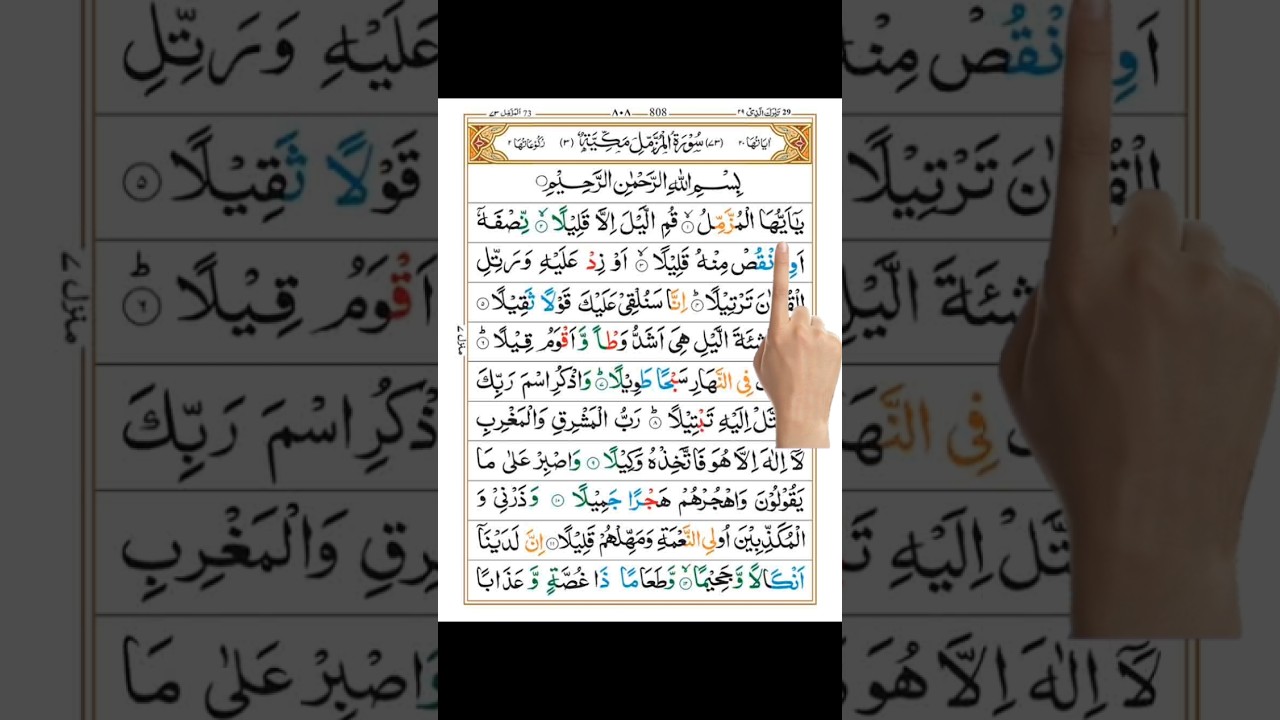 73 المزمل ٧٣ ٨٠٨ 808 29 تبٰرك الذی ٢٩
اٰیاتها ٢٠ (٧٣) سُوْرَةُ الْمُزَّمِّلِ مَكِّیَّةٌ (٣) رُكُوْعَاتُهَا ٢
بِسْمِ اللهِ الرَّحْمٰنِ الرَّحِیْمِ
یٰۤاَیُّهَا الْمُزَّمِّلُ ۙ‏١ قُمِ الَّیْلَ اِلَّا قَلِیْلًا ۙ‏٢ نِّصْفَهٗۤ
اَوِ انْقُصْ مِنْهُ قَلِیْلًا ۙ‏٣ اَوْ زِدْ عَلَیْهِ وَ رَتِّلِ
تَرْتِیْلًا ؕ‏٤ اِنَّا سَنُلْقِیْ عَلَیْكَ قَوْلًا ثَقِیْلًا ٥
الَّیْلِ هِیَ اَشَدُّ وَطْاً وَّ اَقْوَمُ قِیْلًا ؕ‏٦
فِی النَّهَارِ سَبْحًا طَوِیْلًا ؕ‏٧ وَ اذْكُرِ اسْمَ رَبِّكَ
اِلَیْهِ تَبْتِیْلًا ؕ‏٨ رَبُّ الْمَشْرِقِ وَ الْمَغْرِبِ
لَاۤ اِلٰهَ اِلَّا هُوَ فَاتَّخِذْهُ وَكِیْلًا ٩ وَ اصْبِرْ عَلٰی مَا
یَقُوْلُوْنَ وَ اهْجُرْهُمْ هَجْرًا جَمِیْلًا ١٠ وَ ذَرْنِیْ وَ
الْمُكَذِّبِیْنَ اُولِی النَّعْمَةِ وَ مَهِّلْهُمْ قَلِیْلًا ١١ اِنَّ لَدَیْنَاۤ
اَنْكَالًا وَّ جَحِیْمًا ۙ‏١٢ وَّ طَعَامًا ذَا غُصَّةٍ وَّ عَذَابًا
منزل ٧